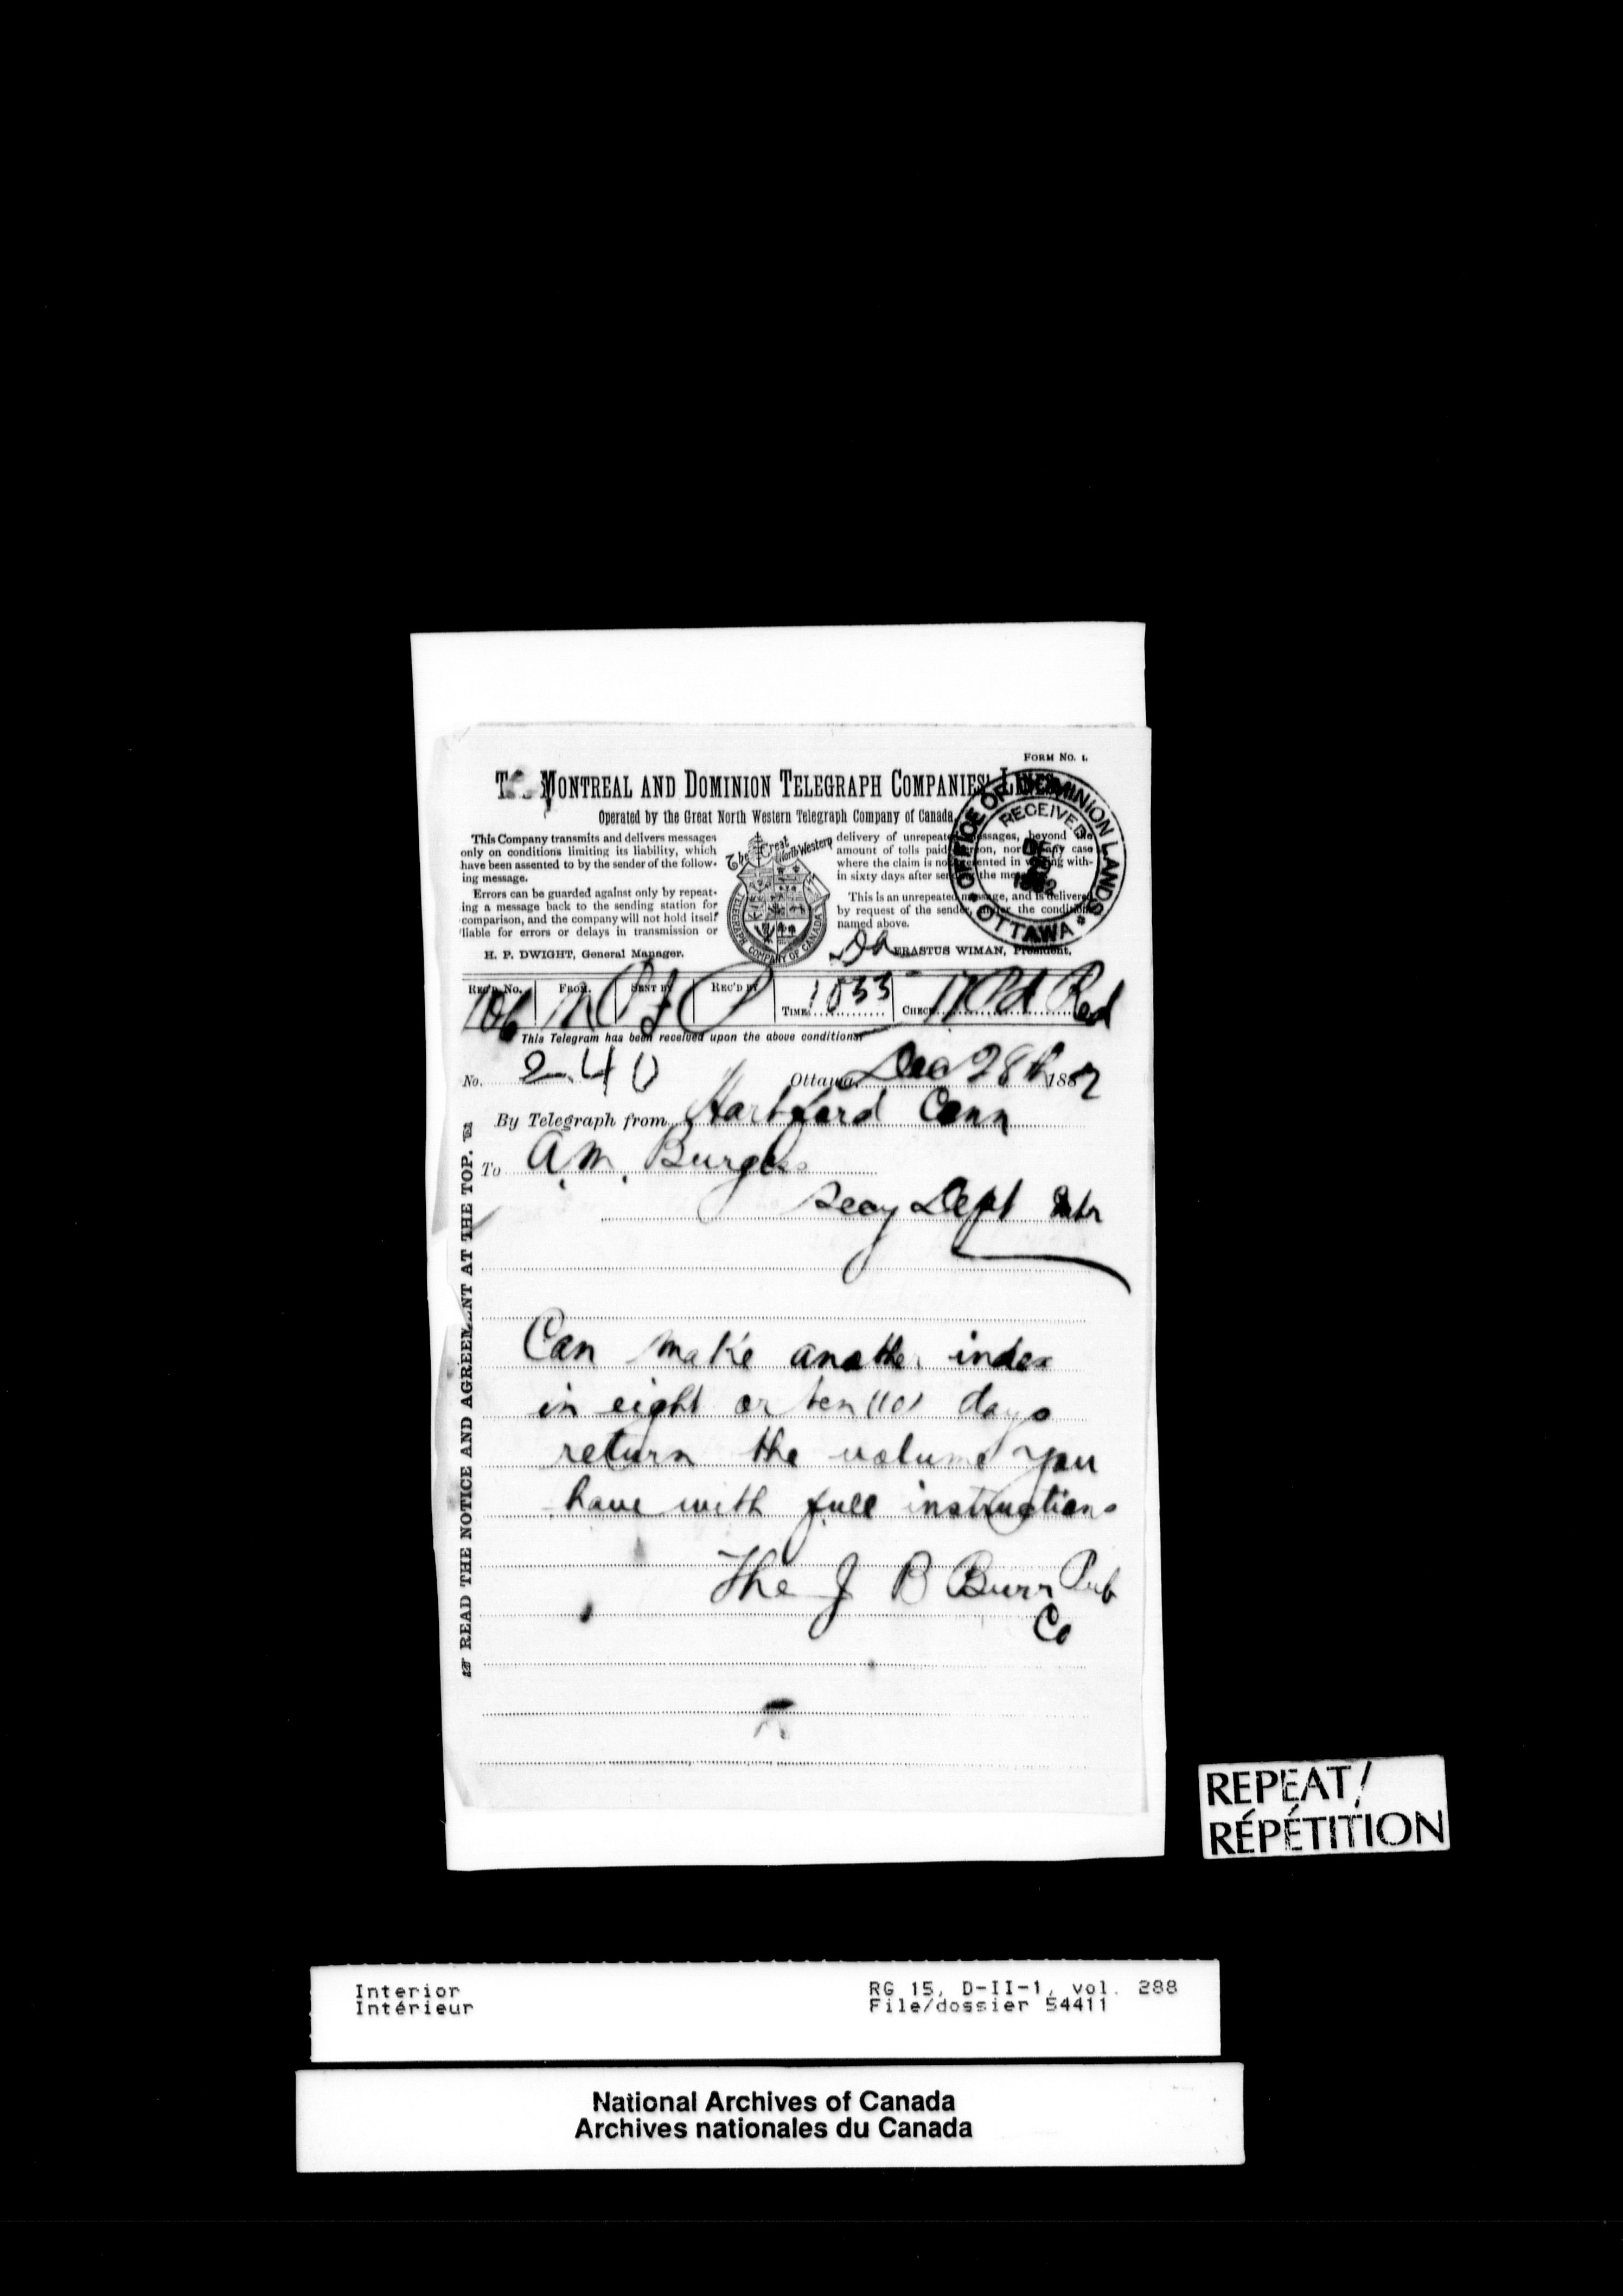 FORM NO. 1.
THE MONTREAL AND DOMINION TELEGRAPH COMPANIES' LINES
Operated by the Great North Western Telegraph Company of Canada.
This Company transmits and delivers messages
only on conditions limiting its liability, which
have been assented to by the sender of the follow-
ing message.
Errors can be guarded against only by repeat-
ing a message back to the sending station for
comparison, and the company will not hold itself
liable for errors or delays in transmission or
H. P. DWIGHT, General Manager.
The Great North Western
TELEGRAPH COMPANY OF CANADA
delivery of unrepeated messages, beyond the
amount of tolls paid thereon, nor in any case
where the claim is not presented in writing with-
in sixty days after sending the message.
This is an unrepeated message, and is delivered
by request of the sender, under the conditions
named above.
ERASTUS WIMAN, President.
OFFICE OF DOMINION LANDS
RECEIVED
DE
1882
OTTAWA
REC'D No. FROM. SENT BY REC'D BY TIME 1033 CHECK 17 Pd
106
This Telegram has been received upon the above conditions.
No. 240 Ottawa, Dec 28th 1882
By Telegraph from Hartford Conn
To A.M. Burgess
Secy Dept Intr
Can make another index
in eight or ten (10) days
return the volume you
have with full instructions
The J B Burr Pub
Co
READ THE NOTICE AND AGREEMENT AT THE TOP.
REPEAT/
RÉPÉTITION
Interior RG 15, D-II-1, vol. 288
Intérieur File/dossier 54411
National Archives of Canada
Archives nationales du Canada